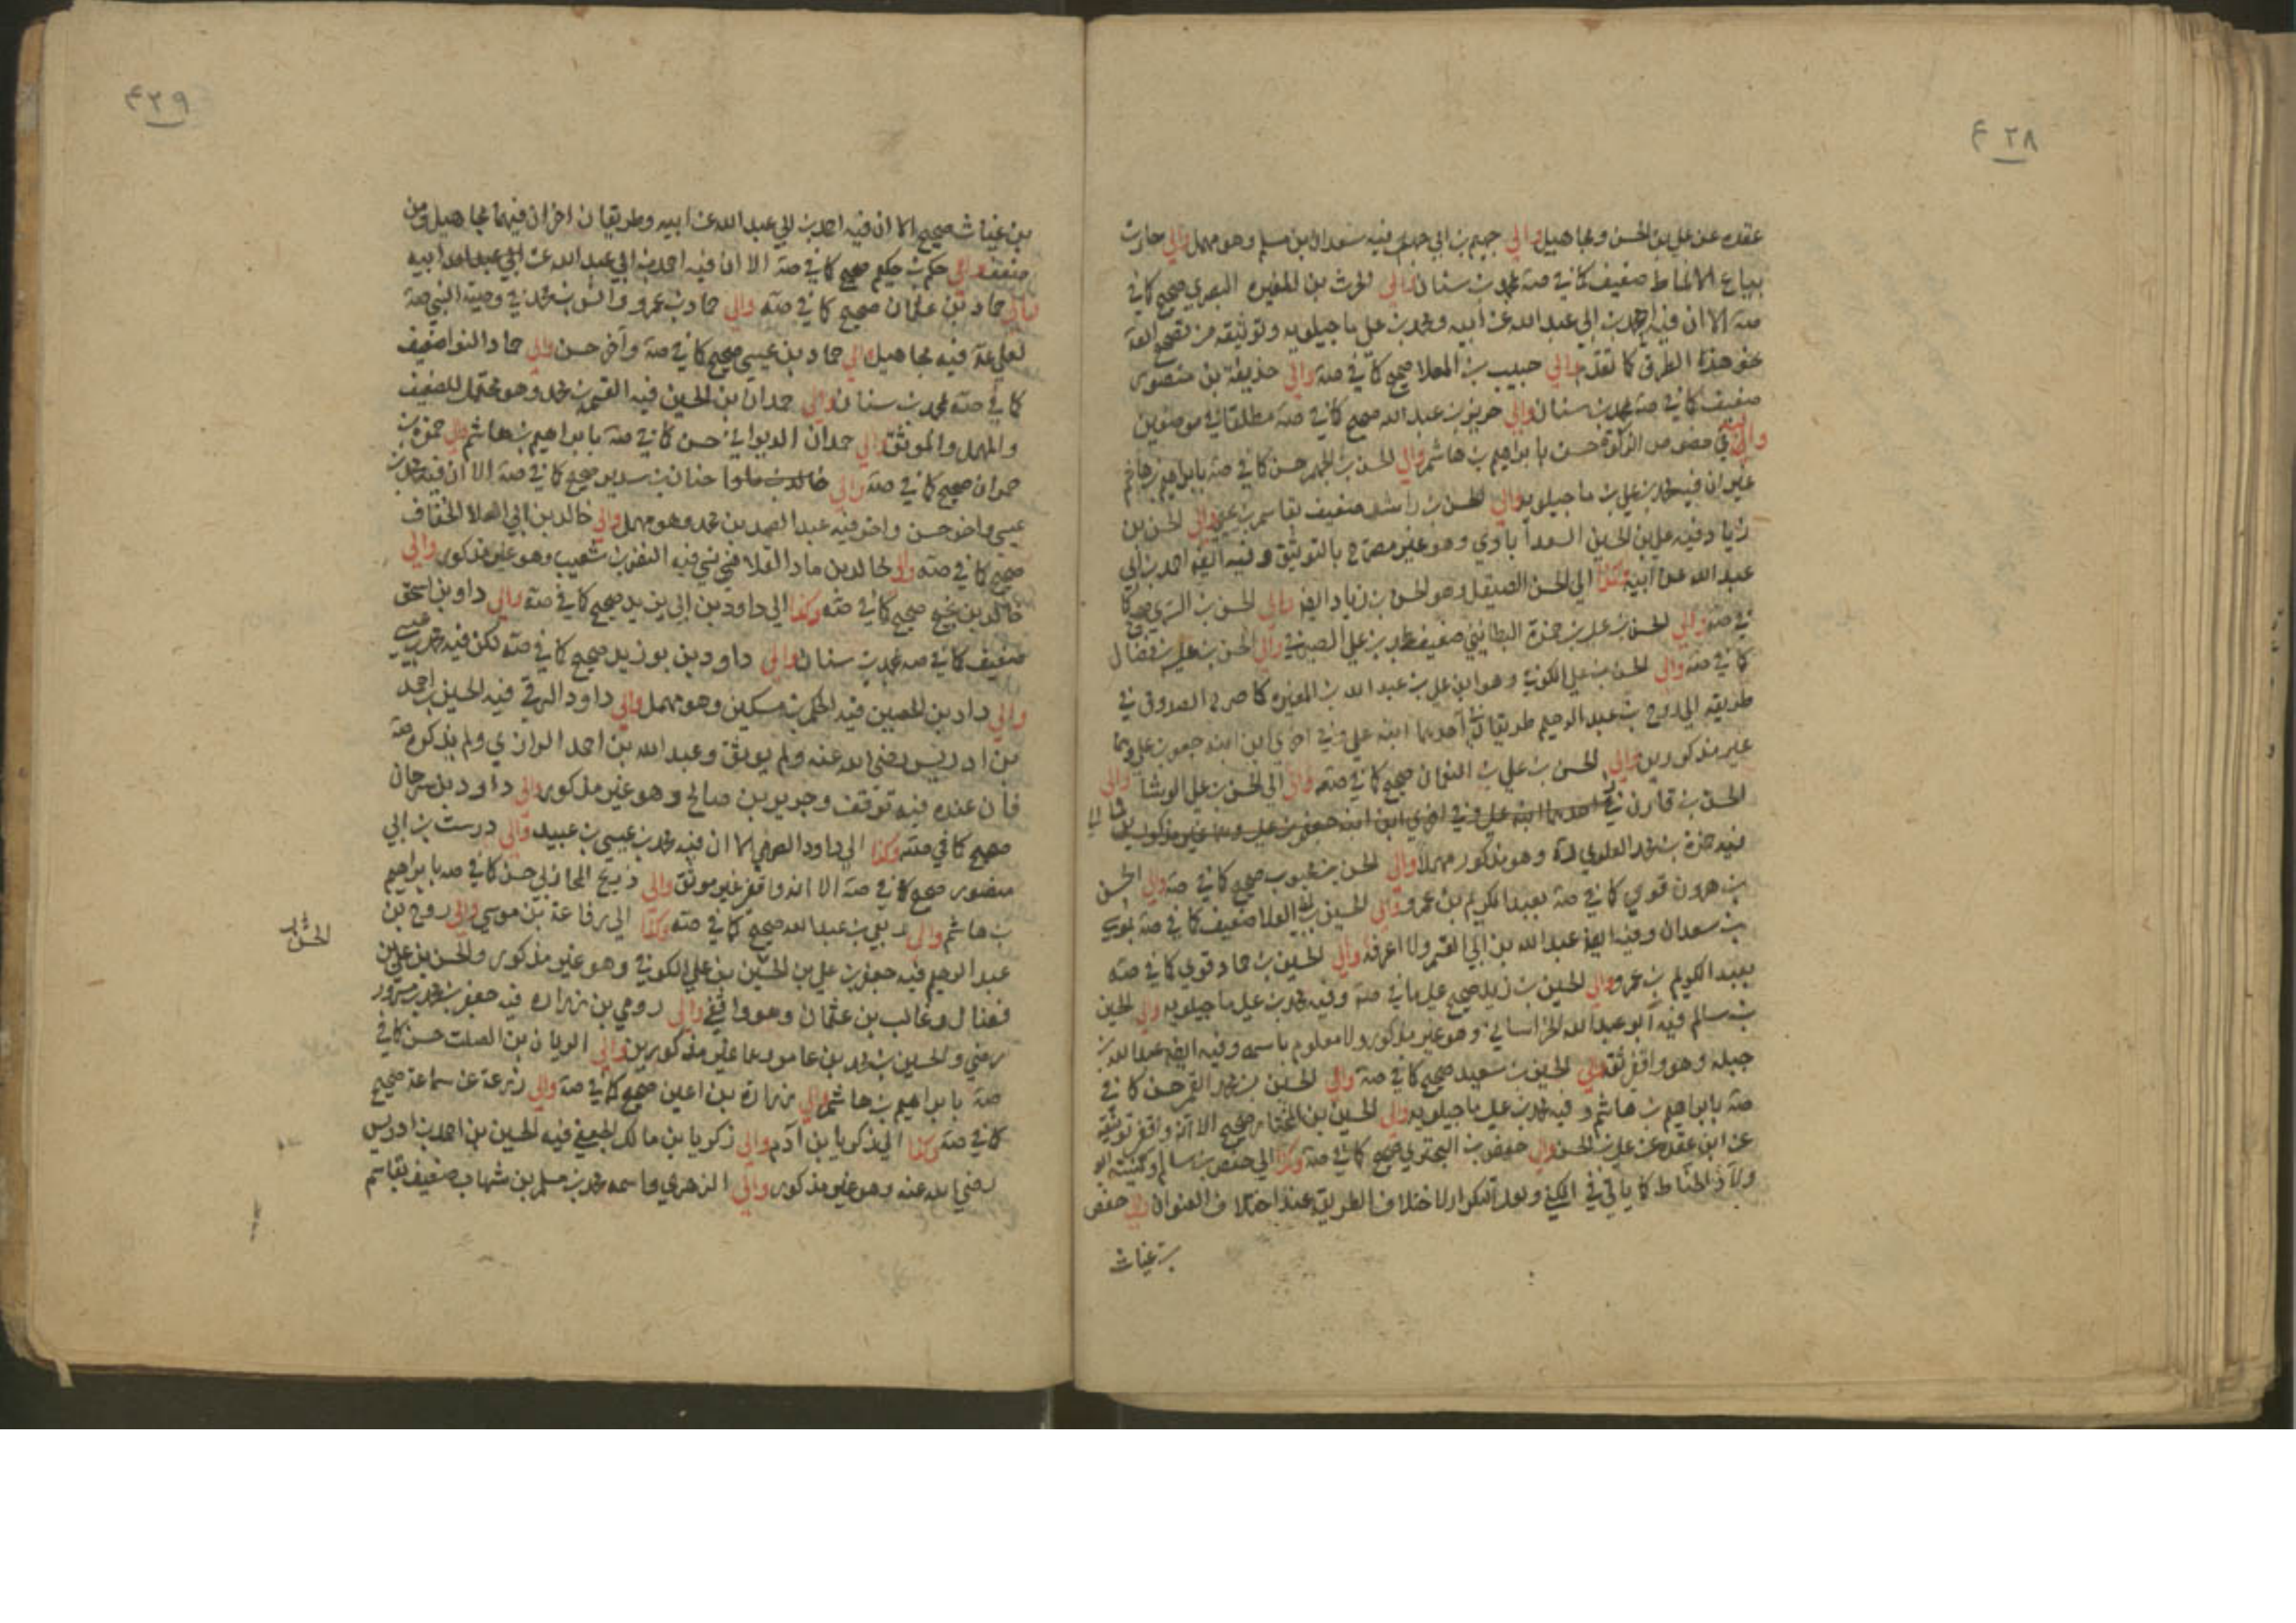 ٤٢٨
عقده عن علي بن الحسن ومجاهيل والي جهيم بن ابي جهم فيه سعدان بن مسلم وهو مهمل والي حارث
بياع الانماط ضعيف كما في صه بمحمد بن سنان والي الحرث بن المغيره البصري صحيح كما في
صه الا ان فيه احمد بن ابي عبد الله عن ابيه ومحمد بن علي ماجيلويه وتوثيقه من تصحيح العلامة
نحو هذا الطرق كما تقدم والي حبيب بن المعلا صحيح كما في صه والي حذيفة بن منصور
ضعيف كما في صه بمحمد بن سنان والي حريز بن عبد الله صحيح كما في صه مطلقا في موضعين
واليه في خصوص الزكوة حسن بابراهيم بن هاشم والي الحسن بن الجهم حسن كما في صه بابراهيم بن هاشم
غير ان فيه محمد بن علي ماجيلويه والي الحسن بن راشد ضعيف بقاسم بن يحيى والي الحسن بن
زياد فيه علي بن الحسين السعدآبادي وهو غير مصرح بالتوثيق وفيه ايضا احمد بن ابي
عبد الله عن ابيه وكذا الي الحسن الصيقل وهو الحسن بن زياد ايضا والي الحسن بن السري صحيح كما
في صه والي الحسن بن علي بن حمزة البطائيني ضعيف بمحمد بن علي الصيرفي والي الحسن بن علي بن فضال
كما في صه والي الحسن بن علي الكوفي وهو ابن علي بن عبد الله بن المغيره كما صرح الصدوق في
طريقه الي روح بن عبد الرحيم طريقان في احدهما ابنه علي وفي اخرى ابن ابنه جعفر بن علي وهما
غير مذكورين والي الحسن بن علي بن النعمان صحيح كما في صه والي الحسن بن علي الوشا والي
الحسن بن قارن في احدهما ابنه علي وفي اخرى ابن ابنه جعفر بن علي وهما غير مذكورين
فيه حمزة بن محمد العلوي وهو مذكور مهملا والي الحسن بن محبوب صحيح كما في صه والي الحسن
بن هرون قوي كما في صه بعبد الكريم بن عمرو والي الحسين بن ابي العلا ضعيف كما في صه بموسى
بن سعدان وفيه ايضا عبد الله بن ابي القسم ولا اعرفه والي الحسين بن حماد قوي كما في صه
بعبد الكريم بن عمرو والي الحسين بن زيد صحيح علي ما في صه وفيه محمد بن علي ماجيلويه والي الحسين
بن سالم فيه ابو عبد الله الخراساني وهو غير مذكور ولا معلوم باسمه وفيه ايضا عبد الله بن
جبله وهو واقفي ثقه والي الحسين بن سعيد صحيح كما في صه والي الحسين بن محمد القمي حسن كما في
صه بابراهيم بن هاشم وفيه محمد بن علي ماجيلويه والي الحسين بن المختار صحيح الا انه واقفي توثيقه
عن ابن عقده عن علي بن الحسن والي حفص بن البختري صحيح كما في صه وكذا الي حفص بن سالم وكنيته ابو
ولاد الحناط كما يأتي في الكنى ولعل التكرار لاختلاف الطريق عند اختلاف العنوان والي حفص
بن غياث
٤٢٩
بن غياث صحيح الا ان فيه احمد بن ابي عبد الله عن ابيه وطريقان اخران فيهما مجاهيل ومن
ضعف والي حكم بن حكيم صحيح كما في صه الا ان فيه احمد بن ابي عبد الله عن ابيه
والي حماد بن عثمان صحيح كما في صه والي حماد بن عمرو وانس بن محمد في وصية النبي صه
لعلي عه فيه مجاهيل والي حماد بن عيسى صحيح كما في صه وآخر حسن والي حماد النوا ضعيف
كما في صه بمحمد بن سنان والي حمدان بن الحسين فيه القسم بن محمد وهو محتمل للضعيف
والمهمل والموثق والي حمدان الديواني حسن كما في صه بابراهيم بن هاشم والي حمزة بن
حمران صحيح كما في صه والي حنان بن سدير صحيح كما في صه الا ان فيه محمد بن
عيسى واخر حسن واخر فيه عبد الصمد بن محمد وهو مهمل والي خالد بن ابي العلا الخفاف
صحيح كما في صه والي خالد بن ماد القلانسي فيه النضر بن شعيب وهو غير مذكور والي
خالد بن نجيح صحيح كما في صه وكذا الي داود بن ابي يزيد صحيح كما في صه والي داود بن اسحق
ضعيف كما في صه بمحمد بن سنان والي داود بن بوزيد صحيح كما في صه لكن فيه محمد بن عيسى
والي داود بن الحصين فيه الحكم بن مسكين وهو مهمل والي داود الرقي فيه الحسين بن احمد
بن ادريس رضي الله عنه ولم يوثق وعبد الله بن احمد الرازي ولم يذكره صه
فان عنده فيه توقف وجرير بن صالح وهو غير مذكور والي داود بن سرحان
صحيح كما في صه وكذا الي داود الصرمي الا ان فيه محمد بن عيسى بن عبيد والي درست بن ابي
منصور صحيح كما في صه الا انه واقفي غير موثق والي ذريح المحاربي حسن كما في صه بابراهيم
بن هاشم والي ربعي بن عبد الله صحيح كما في صه وكذا الي رفاعة بن موسى والي روح بن
عبد الرحيم فيه جعفر بن علي بن الحسن بن علي الكوفي وهو غير مذكور والحسن بن علي بن
فضال وغالب بن عثمان وهو واقفي والي رومي بن زراره فيه جعفر بن محمد بن مسرور
رضي والحسين بن محمد بن عامر وهما غير مذكورين والي الريان بن الصلت حسن كما في
صه بابراهيم بن هاشم والي زرارة بن اعين صحيح كما في صه والي زرعة عن سماعة صحيح
كما في صه وكذا الي زكريا بن آدم والي زكريا بن مالك الجعفي فيه الحسين بن احمد بن ادريس
رضي الله عنه وهو غير مذكور والي الزهري واسمه محمد بن مسلم بن شهاب ضعيف بقاسم